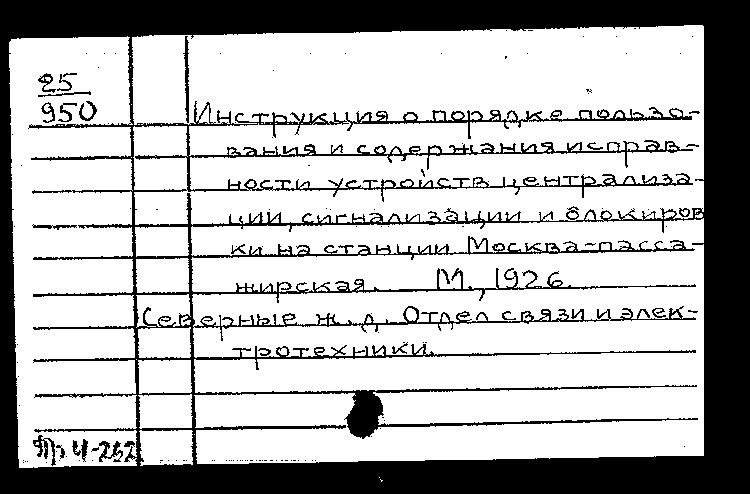 25
950
Инструкция о порядке пользо-
вания и содержания исправ-
ности устройств централиза-
ции, сигнализации и блокиров
ки на станции Москва-пасса-
жирская. М., 1926.
Северные ж. д. Отдел связи и элек-
тротехники.
4-262